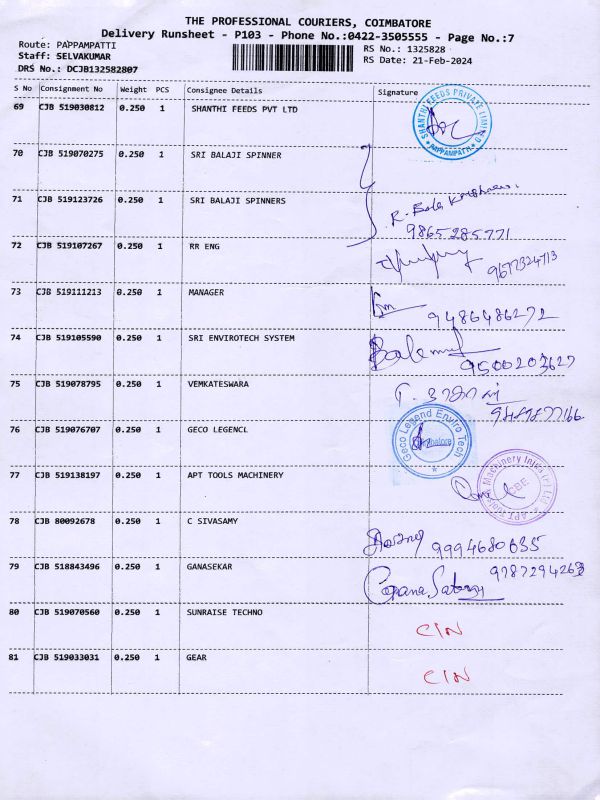 THE PROFESSIONAL COURIERS, COIMBATORE
Delivery Runsheet - P103 - Phone No.:0422-3505555 - Page No.:7
Route: PAPPAMPATTI
Staff: SELVAKUMAR
DRS No.: DCJB132582807
RS No.: 1325828
RS Date: 21-Feb-2024
S No Consignment No Weight PCS Consignee Details Signature
69 CJB 519030812 0.250 1 SHANTHI FEEDS PVT LTD
SHANTHI FEEDS PRIVATE LIMITED
PAPPAMPATTI
70 CJB 519070275 0.250 1 SRI BALAJI SPINNER
71 CJB 519123726 0.250 1 SRI BALAJI SPINNERS
R. Bala Krishnan.
9865285771
72 CJB 519107267 0.250 1 RR ENG
9677324713
73 CJB 519111213 0.250 1 MANAGER
9486486272
74 CJB 519105590 0.250 1 SRI ENVIROTECH SYSTEM
9500203627
75 CJB 519078795 0.250 1 VEMKATESWARA
76 CJB 519076707 0.250 1 GECO LEGENCL
Geco Legend Enviro Tech
77 CJB 519138197 0.250 1 APT TOOLS MACHINERY
CBE
78 CJB 80092678 0.250 1 C SIVASAMY
9994680635
79 CJB 518843496 0.250 1 GANASEKAR
9787294263
80 CJB 519070560 0.250 1 SUNRAISE TECHNO
CIN
81 CJB 519033031 0.250 1 GEAR
CIN